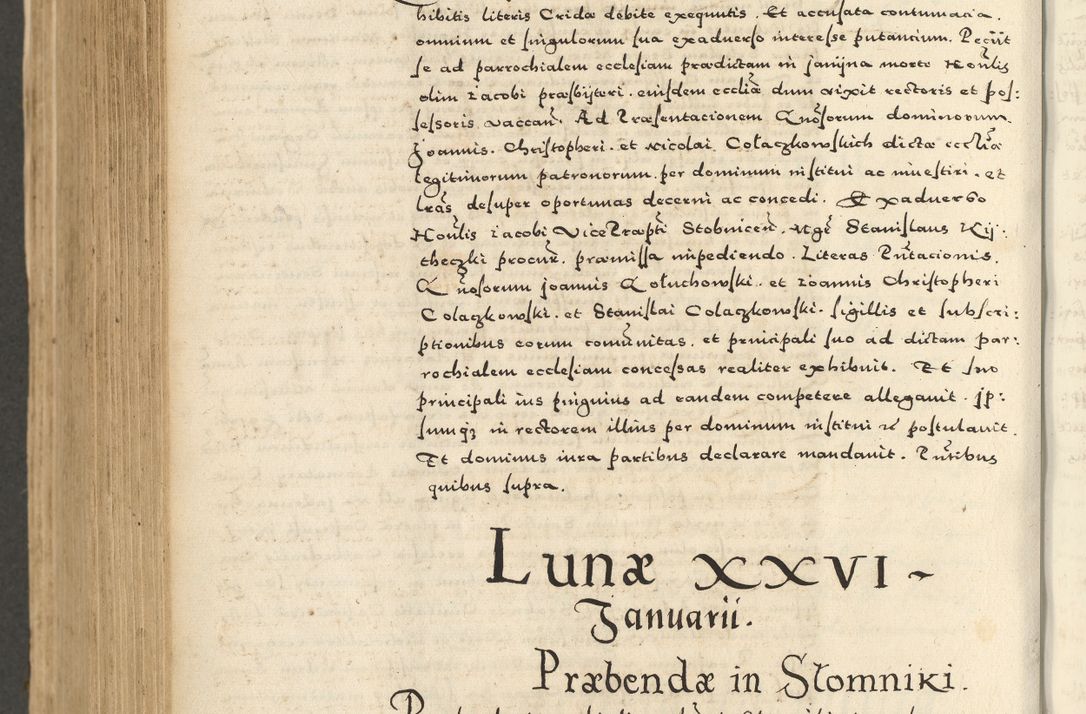 hibitis literis Cridæ debite exequutis. Et accusata contumacia.
omnium et singulorum sua exaduerso interesse putancium. Peciit
se ad parrochialem ecclesiam prædictam in Janijna morte Honĩlis
olim Jacobi præsbijteri. eiusdem eccliæ dum vixit rectoris et pos:
sessoris vaccañ. Ad Præsentacionem Gñosorum dominorum.
Joannis. Christopheri. et Nicolai Cołaczkowskich dictæ eccliæ
legitimorum patronorum. per dominum institui ac inuestiri. et
lrãs desuper oportunas decerni ac concedi. Et Exaduerso
Honĩlis Jacobi VicePræpti Stobniceñ. Mgr̃ Stanislaus Kij:
theczki procur̃. præmissa impediendo. Literas Pñtacionis.
Gñosorum Joannis Goluchowski. et Joannis Christopheri
Colaczkowski. et Stanislai Colaczkowski. sigillis et subscri:
ptionibus eorum comũnitas. et principali suo ad dictam par:
rochialem ecclesiam concessas realiter exhibuit. Et suo
principali ius pinguius ad eandem competere allegauit. Jp:
sumqꝫ in rectorem illius per dominum institui etc postulauit.
Et dominus iura partibus declarare mandauit. Pñtibus
quibus supra.
Lunæ XXVI ~
Januarii.
Præbendæ in Słomniki.